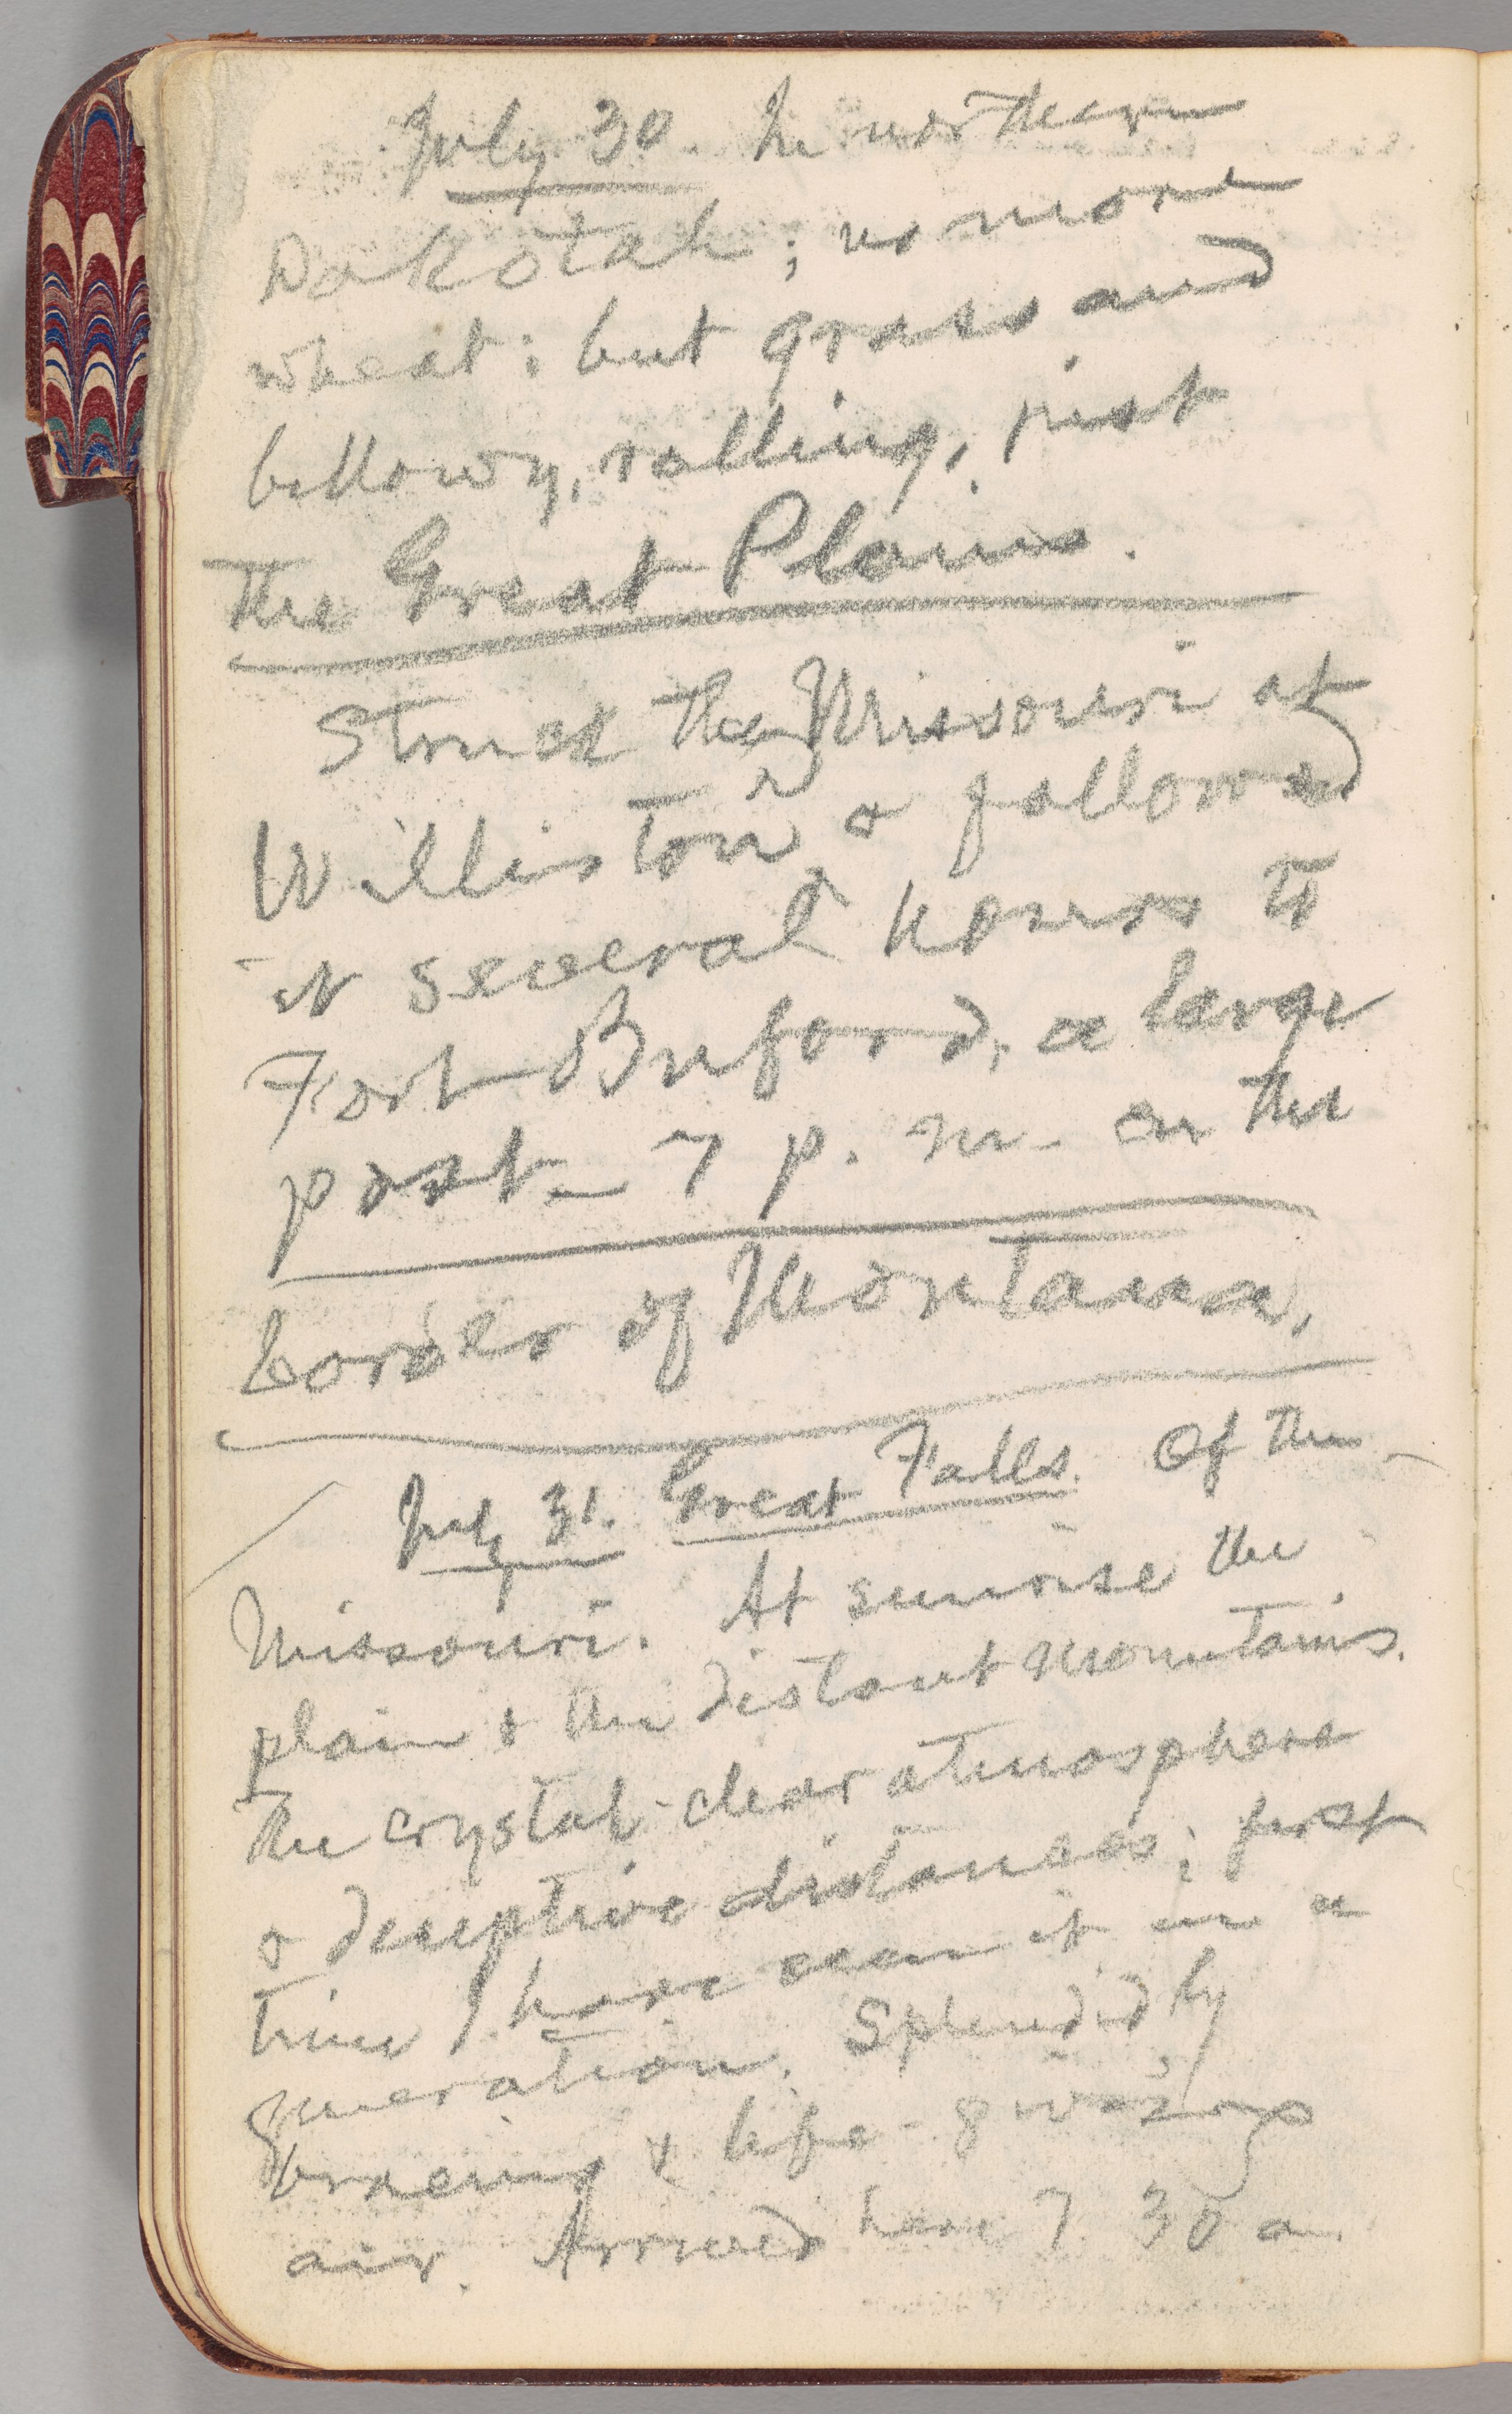 July 30. In northern
Dakotah; no more
wheat; but grass and
billowy, rolling, just
the Great Plains.
Struck the Missouri at
Williston & followed
it several hours to
Fort Buford, a large
post — 7 p. m. on the
border of Montana,
July 31. Great Falls. Of the
Missouri. At sunrise the
plain & the distant mountains.
The crystal-clear atmosphere
& deceptive distances; first
time I have seen it in a
generation. Splendidly
bracing & life-giving
air. Arrived here 7 30 a.